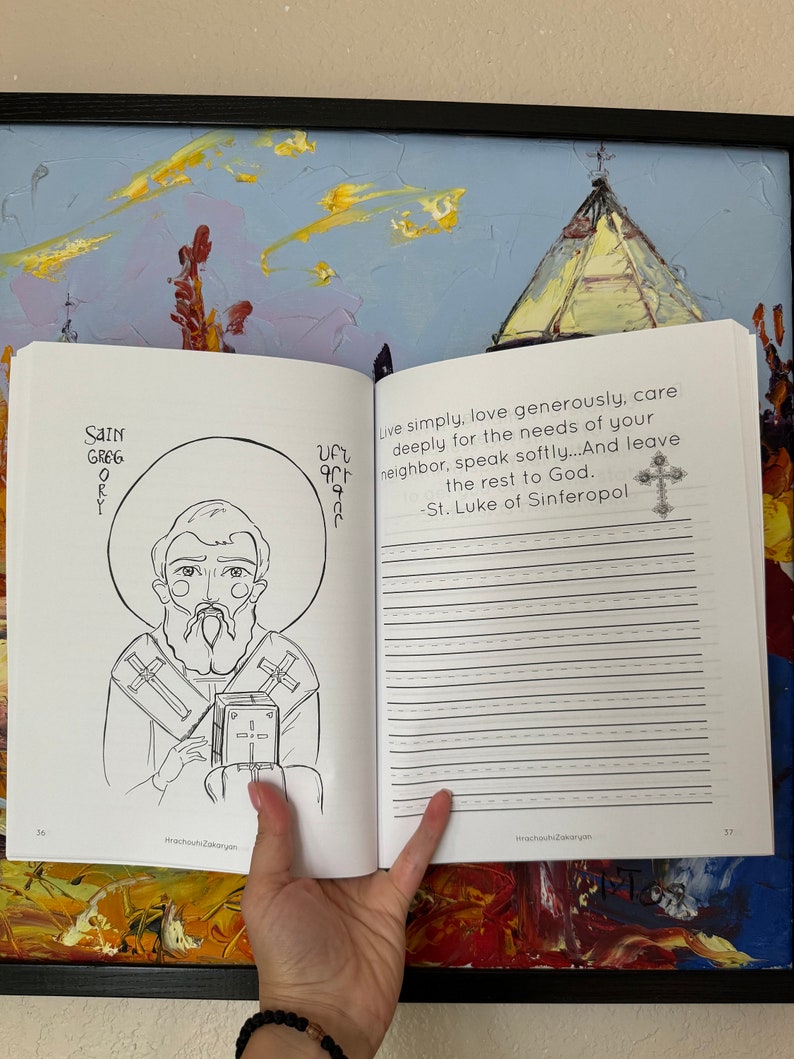 SAIN
GREG
O
R
Y
ՍԲՆ
ԳՐԻ
Գ
Ո
Ր
36
HrachouhiZakaryan
Live simply, love generously, care
deeply for the needs of your
neighbor, speak softly...And leave
the rest to God.
-St. Luke of Sinferopol
HrachouhiZakaryan
37